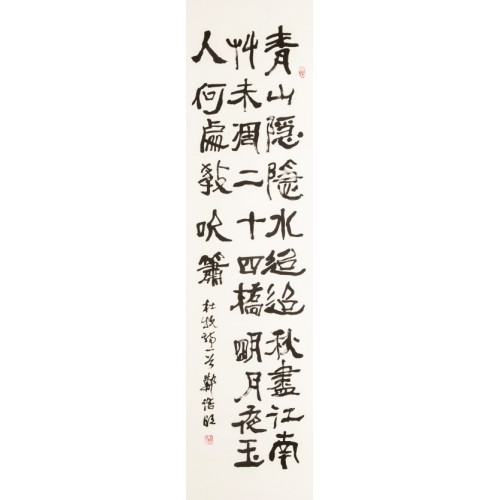 青山隱隱水迢迢秋盡江南
艸未凋二十四橋明月夜玉
人何處教吹簫
杜牧詩一首 鄭